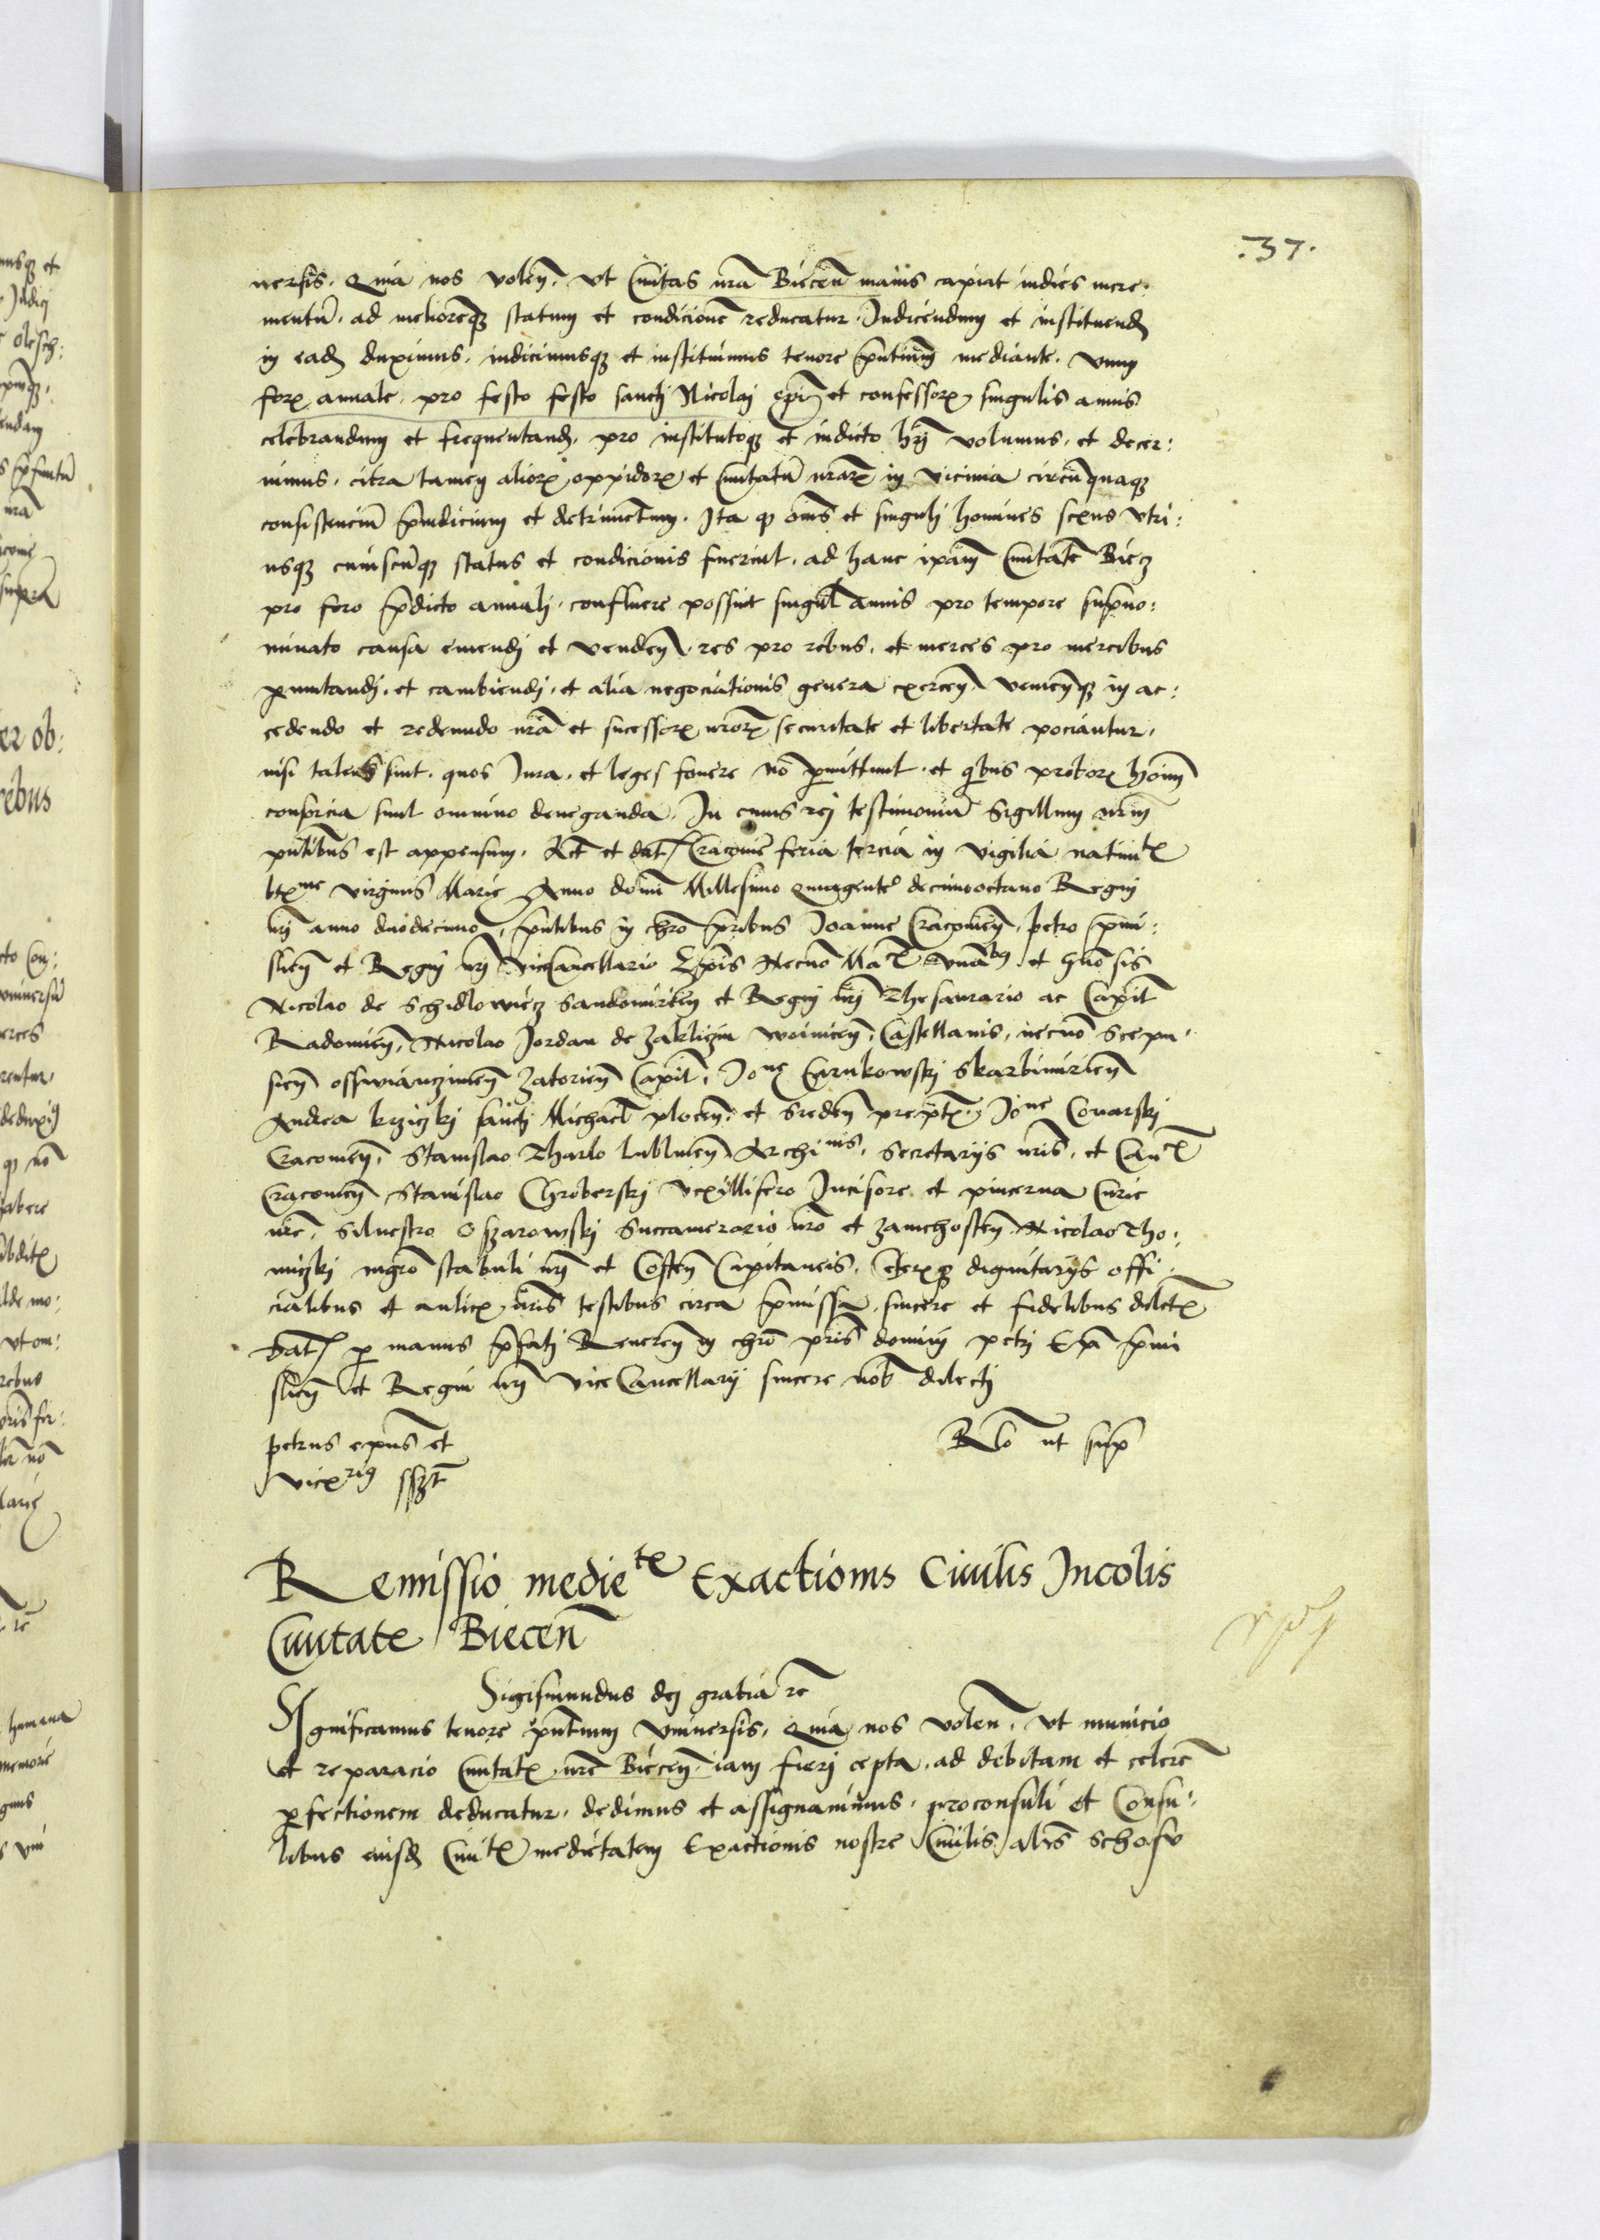 .37.
uersis. Quia nos volen. vt Ciuitas nra Biecen maius capiat indies incre.
mentu. ad melioremq statum et condicione reducatur. Indicendum et instituend
in ead duximus. indicimusq et instituimus tenore pntium mediante. vnum
for annale. pro festo festo sancti Nicolai epi et confessor, singulis annis
celebrandum et frequentand. pro institutoq et indicto hri volumus. et decer:
nimus. citra tamen alior oppidor et ciuitatu nrar in vicinia circuquaq
consistenciu preiudicium et detrimentum. Ita q oms et singuli homines sexus vtri:
usq cuiuscuq status et condicionis fuerint. ad hanc ipam Ciuitate Biecz
pro foro predicto annali. confluere possint singul annis pro tempore supno:
minato causa emendi et venden. res pro rebus. et merces pro mercibus
permutandi. et cambiendi. et alia negociationis genera exercen. veniendq in ac:
cedendo et redeundo nra et sucessor nror securitate et libertate pociantur.
nisi tales sint. quos Iura. et leges fouere no permittunt. et quibus probor hoim
consorcia sunt omnino deneganda. In cuius rei testimoniu Sigillum nrum
pntibus est appensum. Act et dat Cracouie feria tercia in vigilia natiuit
btme virginis Marie Anno domi Millesimo quingente decimooctauo Regni
nri anno duodecimo, pntibus in chro pribus Ioanne Cracouien. petro premi:
slien et Regni nri vicecancellario Epis Necno et
Nicolao de Schidlowiecz Sandomirien et Regni nri Thesaurario ac Capit
Radomien. Nicolao Jordan de Zakliczin woinicen. Castellanis. necno Scepu.
sien osswianczimen Zatorien Capit. Ione Carnkowski Skarbimirien
Andrea krziczki sancti Michael plocen. et Sreden prept. Ione Conarski
Cracouien. Stanislao Tharlo lublinen Archinis. Secretarijs nris. et Can
Cracouien Stanislao Chroberski vexillifero Incisore. et pincerna Curie
nre. Siluestro Oszarowski Succamerario nro et zauichosten. Nicolao Tho:
miczki mgro stabuli nri et Costen Capitaneis.Ceterq dignitarijs offi.
cialibus et aulic nris testibus circa premissa. sincere et fidelibus dilet
Dat per manus prefati Reueren in chro pris domini petri Epi premi
slien et Regni nri viceCancellarij sincere nob dilecti
petrus epus et
vicerius sszt
Rlo ut sup
Remissio mediete Exactionis Ciuilis Incolis
Ciuitate Biecen
Sigismundus dei gratia re
Significamus tenore pntium vniuersis. Quia nos volen. vt municio
et reparacio Ciuitat nre Biecen. iam fieri cepta. ad debitam et celere
perfectionem deducatur. dedimus et assignauimus. proconsuli et Consu.
libus eiusd Ciuit medietatem Exactionis nostre Ciuilis als Schosv